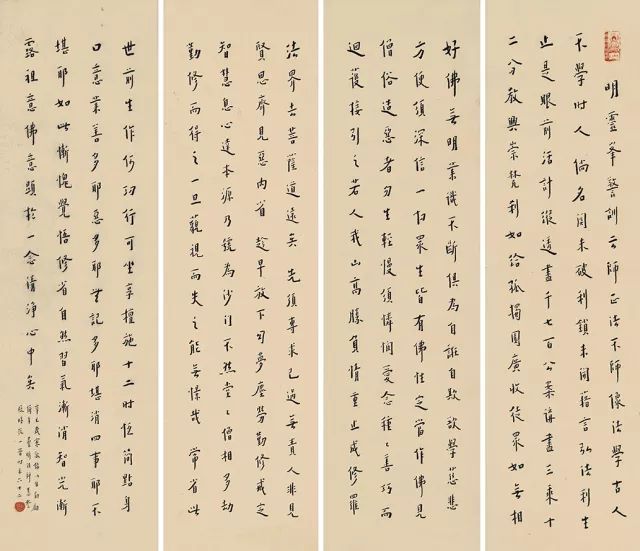 明靈峯警訓云師正法不師像法學古人
不學时人倘名關未破利鎖未開藉言弘法利生
止是眼前活計縱透盡千七百公案講盡三乘十
二分教興崇梵刹如給孤獨園廣收徒眾如無相
好佛無明業識不斷俱為自誑自欺欲學慈悲
方便須深信一切眾生皆有佛性定當作佛見
僧俗造惡者勿生輕慢須憐憫愛念種〻善巧而
迴護接引之若人我山高勝負情重止成修羅
法界去菩薩道遠矣先須專求己過毋責人非見
賢思齊見惡內省趁早放下幻夢塵勞勤修戒定
智慧息心達本源乃號為沙门不然堂〻僧相多劫
勤修而得之一旦藐視而失之能無悚哉常省此
世前生作何功行可坐享檀施十二时位简點身
口意業善多耶惡多耶無記多耶堪消四事耶不
堪耶如此慚愧覺悟修省自然習氣漸消智光漸
露祖意佛意顯於一念清淨心中矣